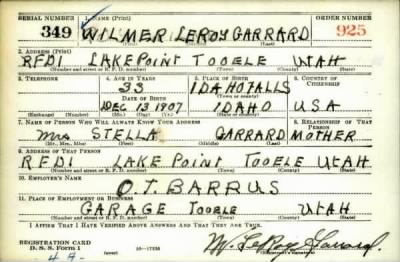 SERIAL NUMBER 1. NAME (Print) ORDER NUMBER
349 WILMER LEROY GARRARD 925
(First) (Middle) (Last)
2. ADDRESS (Print)
RFD1 LAKE POINT TOOELE UTAH
(Number and street or R. F. D. number) (Town) (County) (State)
3. TELEPHONE 4. AGE IN YEARS 5. PLACE OF BIRTH 6. COUNTRY OF CITIZENSHIP
33 IDAHO FALLS
DATE OF BIRTH (Town or county)
DEC 13 1907 IDAHO USA
(Exchange) (Number) (Mo.) (Day) (Yr.) (State or country)
7. NAME OF PERSON WHO WILL ALWAYS KNOW YOUR ADDRESS 8. RELATIONSHIP OF THAT PERSON
Mrs STELLA GARRARD MOTHER
(Mr., Mrs., Miss) (First) (Middle) (Last)
9. ADDRESS OF THAT PERSON
RFD1 LAKE POINT TOOELE UTAH
(Number and street or R. F. D. number) (Town) (County) (State)
10. EMPLOYER'S NAME
O.T. BARRUS
11. PLACE OF EMPLOYMENT OR BUSINESS
GARAGE TOOELE UTAH
(Number and street or R. F. D. number) (Town) (County) (State)
I AFFIRM THAT I HAVE VERIFIED ABOVE ANSWERS AND THAT THEY ARE TRUE.
REGISTRATION CARD
D. S. S. Form 1 (over) 16—17105 W. LeRoy Garrard
(Registrant's signature)
4 A-